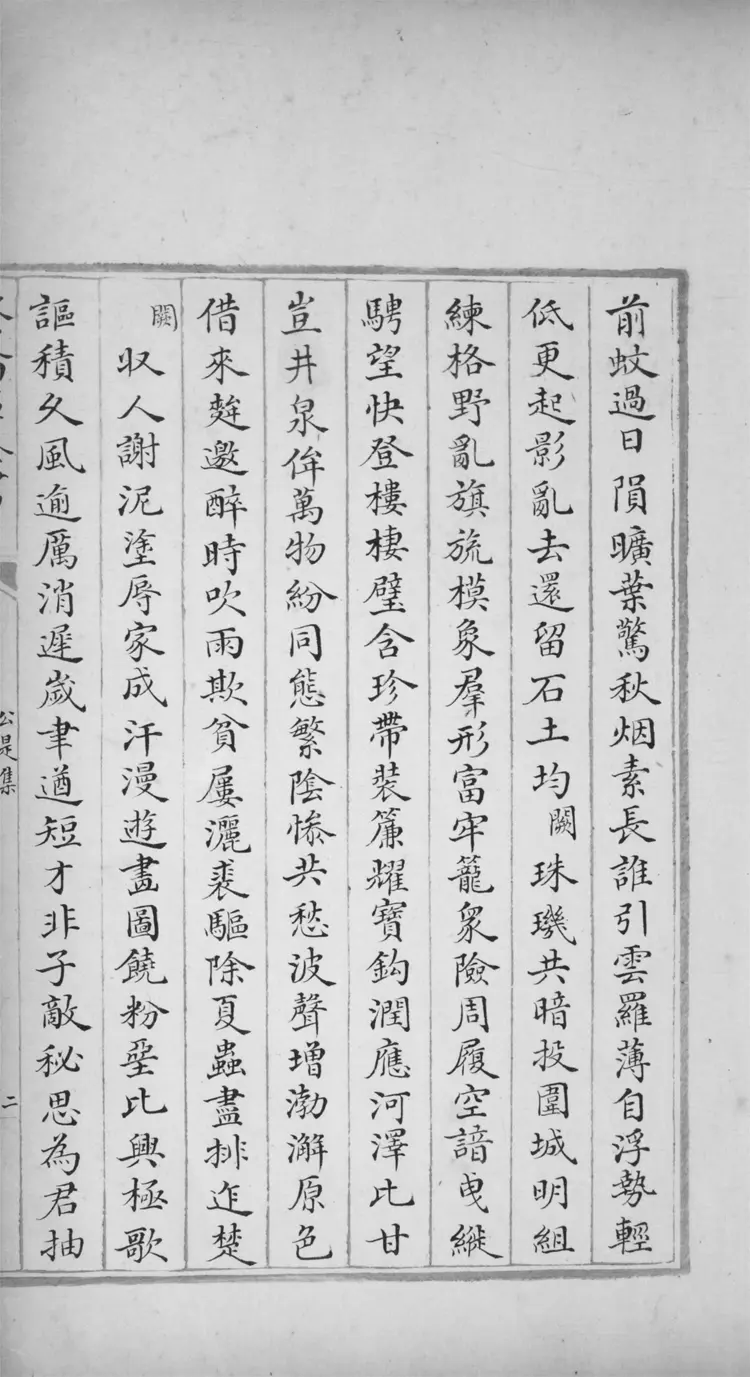 前蚊過日隕曠葉驚秋烟素長誰引雲羅薄自浮勢輕
低更起影亂去還留石土均闕珠璣共暗投圍城明組
練格野亂旗旒模象羣形富牢籠衆險周履空諳曳縱
騁望快登樓棲璧含珍帶裝簾耀寶鈎潤應河澤比甘
豈井泉侔萬物紛同態繁陰慘共愁波聲增渤澥原色
借來麰邀醉時吹雨欺貧屢灑裘驅除夏蟲盡排迮楚
闕収人謝泥塗辱家成汗漫遊畫圖饒粉堊比興極歌
謳積久風逾厲消遲歲聿遒短才非子敵秘思為君抽
公是集
二